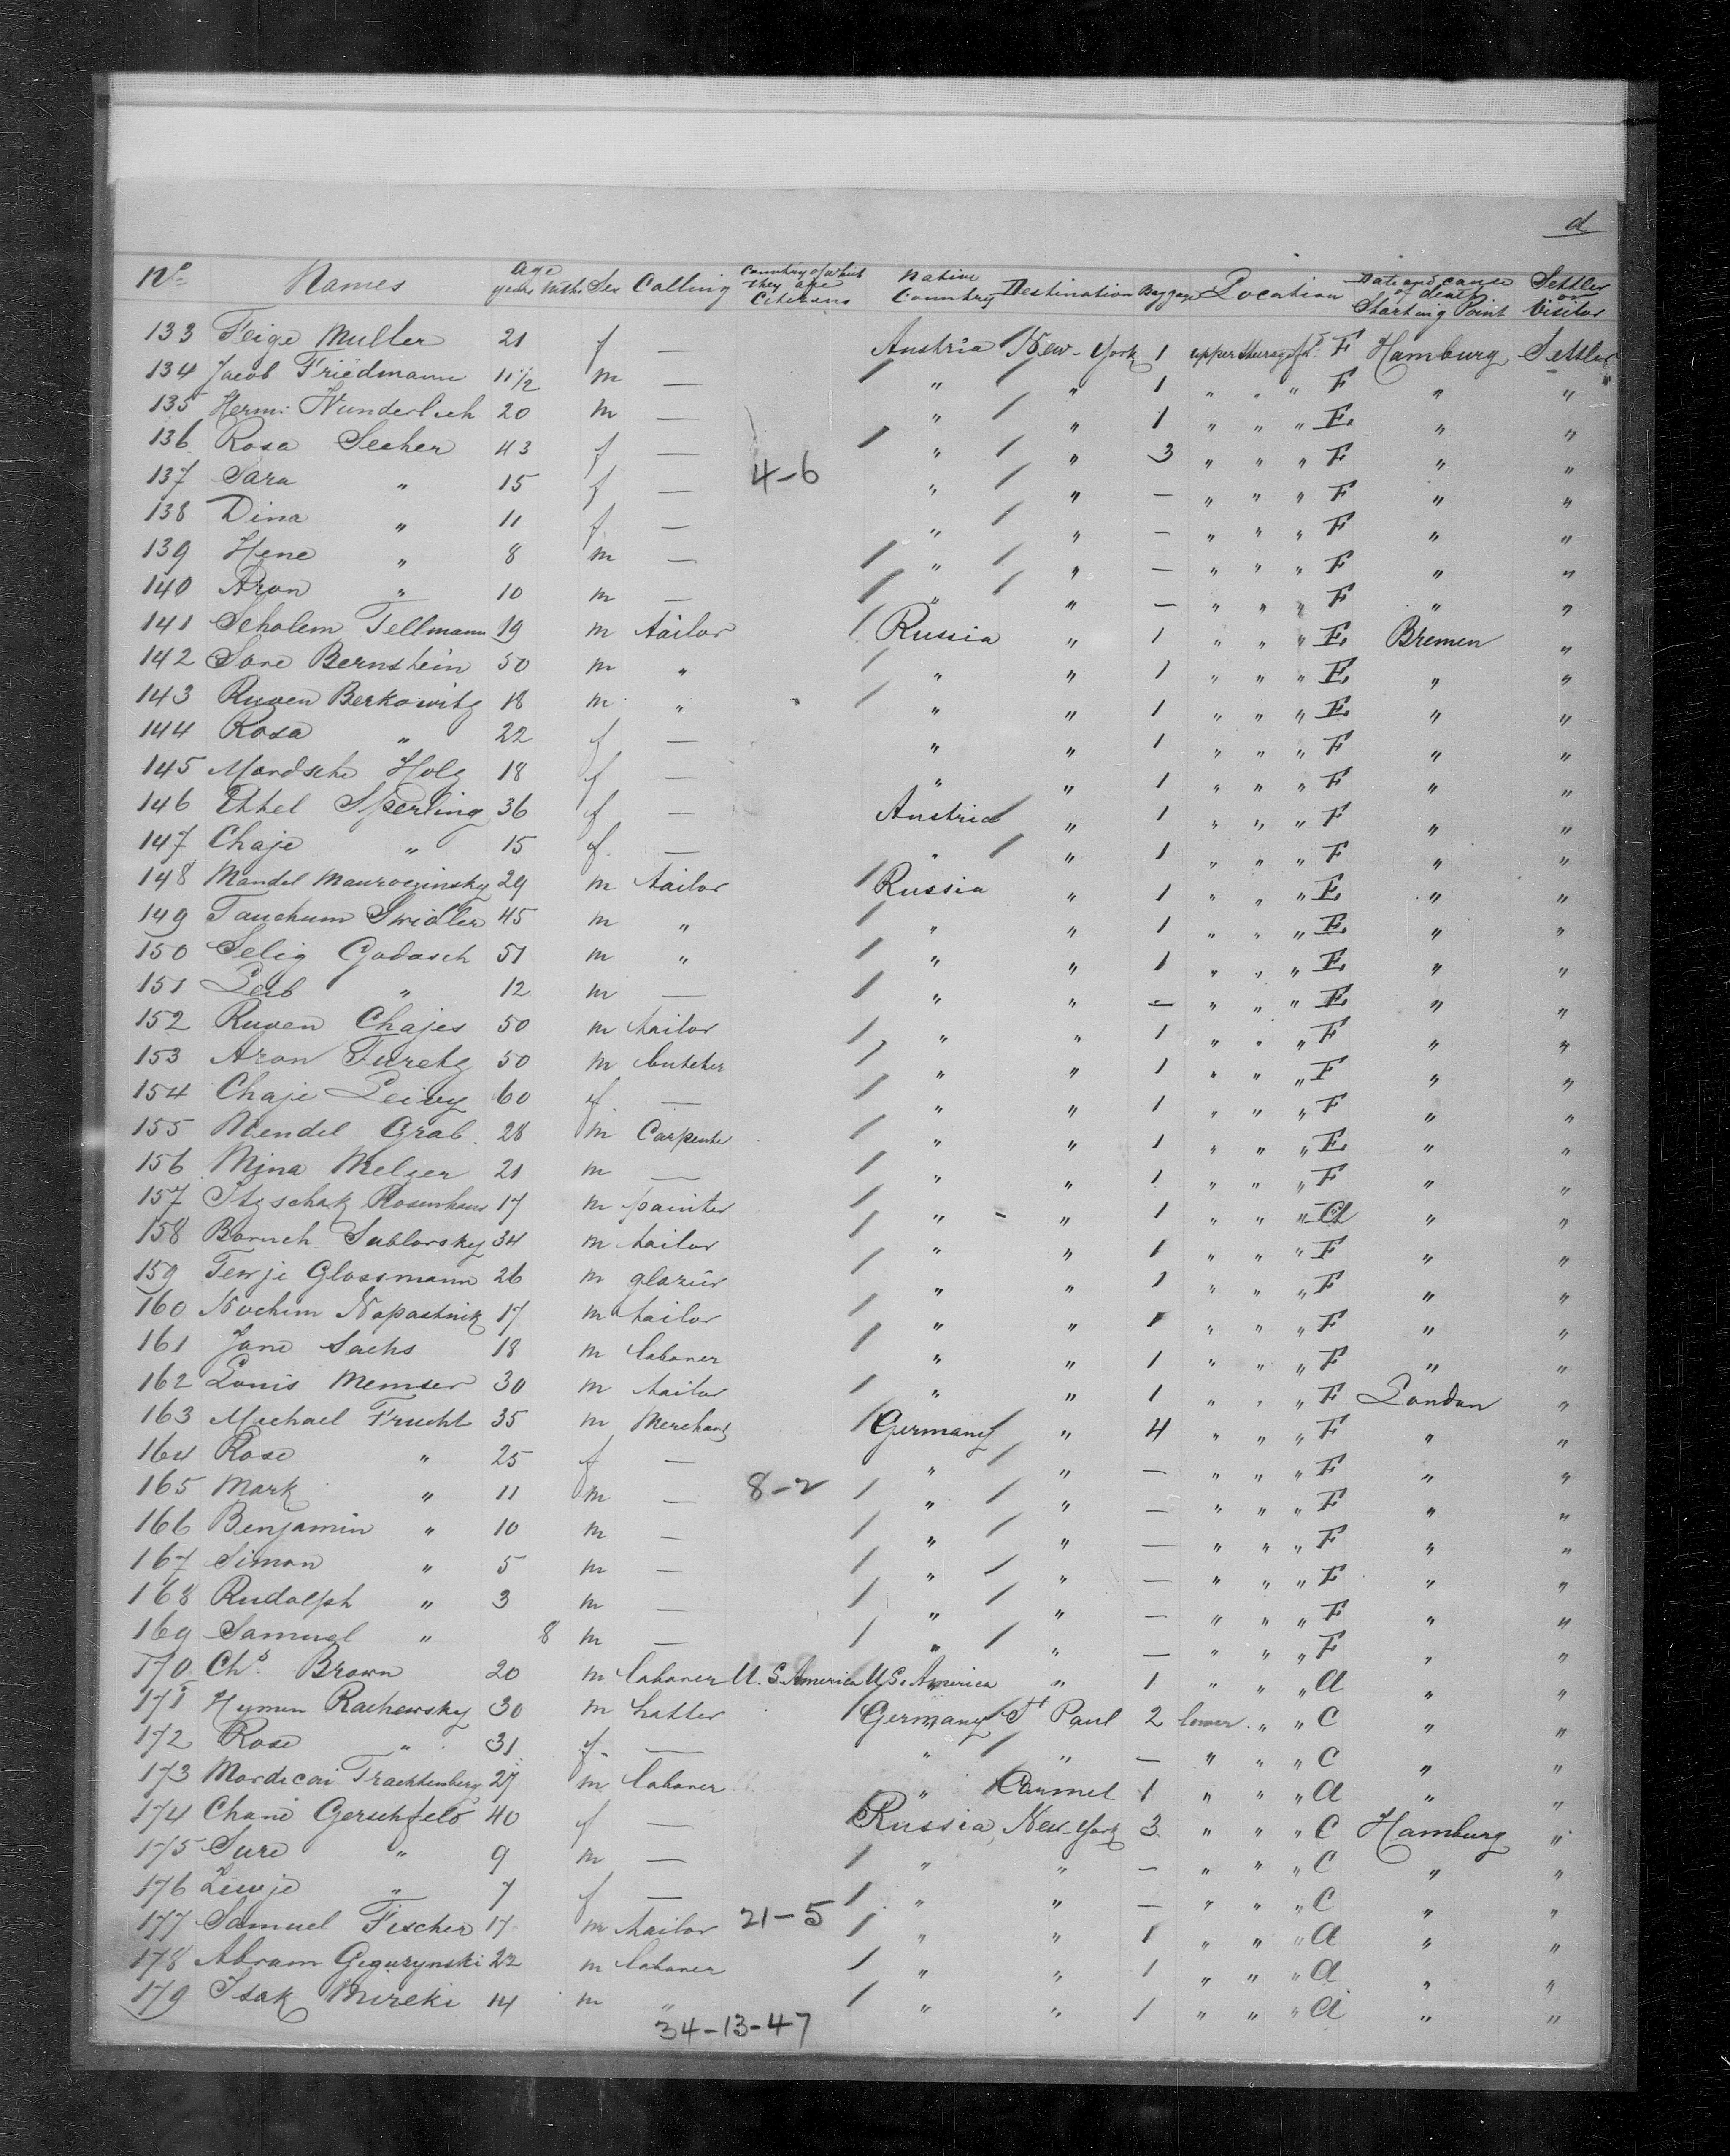 d
No Names Age years Mths Sex Calling Country of which they are Citizens Native Country Destination Baggage Location Date and cause of death Starting Point Settler or Visitor
133 Feige Muller 21 f — Austria New-York 1 upper F Hamburg Settler
134 Jacob Friedmann 11 1/2 m — " " 1 " " " F " "
135 Herm: Wunderlich 20 m — " " 1 " " " E " "
136 Rosa Secher 43 f — " " 3 " " " F " "
137 Sara " 15 f — 4-6 " " — " " " F " "
138 Dina " 11 f — " " — " " " F " "
139 Hene " 8 m — " " — " " " F " "
140 Aron " 10 m — " " — " " " F " "
141 Scholem Tellmann 19 m tailor Russia " 1 " " " E Bremen "
142 Sore Bernstein 50 m " " " 1 " " " E " "
143 Ruven Berkowitz 18 m " " " 1 " " " E " "
144 Rosa " 22 f — " " 1 " " " F " "
145 Mordsche Holz 18 f — " " 1 " " " F " "
146 Ettel Sperling 36 f — Austria " 1 " " " F " "
147 Chaje " 15 f — " " 1 " " " F " "
148 Mandel 29 m tailor Russia " 1 " " " E " "
149 Tauchum Swidler 45 m " " " 1 " " " E " "
150 Selig Godasch 51 m " " " 1 " " " E " "
151 Leib " 12 m — " " — " " " E " "
152 Ruven Chajes 50 m tailor " " 1 " " " F " "
153 Aron Turetz 50 m butcher " " 1 " " " F " "
154 Chaje 60 f — " " 1 " " " F " "
155 Mendel Grab 28 m Carpenter " " 1 " " " E " "
156 Mina Melzer 21 m — " " 1 " " " F " "
157 Itzschak Rosenhaus 17 m painter " " 1 " " " a " "
158 Boruch Sublorsky 34 m tailor " " 1 " " " F " "
159 Tewje Glossmann 26 m glazier " " 1 " " " F " "
160 Nochim Nopastnik 17 m tailor " " 1 " " " F " "
161 Jane Sachs 18 m laborer " " 1 " " " F " "
162 Louis Memser 30 m tailor " " 1 " " " F London "
163 Michael Frucht 35 m Merchant Germany " 4 " " " F " "
164 Rose " 25 f — " " — " " " F " "
165 Mark " 11 m — 8-2 " " — " " " F " "
166 Benjamin " 10 m — " " — " " " F " "
167 Simon " 5 m — " " — " " " F " "
168 Rudolph " 3 m — " " — " " " F " "
169 Samuel " 8 m — " " — " " " F " "
170 Chs. Brown 20 m laborer U.S. America U.S. America " 1 " " " a " "
171 Hymen Rachewsky 30 m hatter Germany St Paul 2 lower " " C " "
172 Rose " 31 f — " " — " " " C " "
173 Mordecai Tracktenberg 27 m laborer " Carmel 1 " " " a " "
174 Chane Gerschfeld 40 f — Russia New-York 3 " " " C Hamburg "
175 Sure " 9 m — " " — " " " C " "
176 Liwje " 7 f — " " — " " " C " "
177 Samuel Fischer 17 m tailor 21-5 " " 1 " " " a " "
178 Abram 22 m laborer " " 1 " " " a " "
179 Isak Mireki 14 m " " " 1 " " " a " "
34-13-47